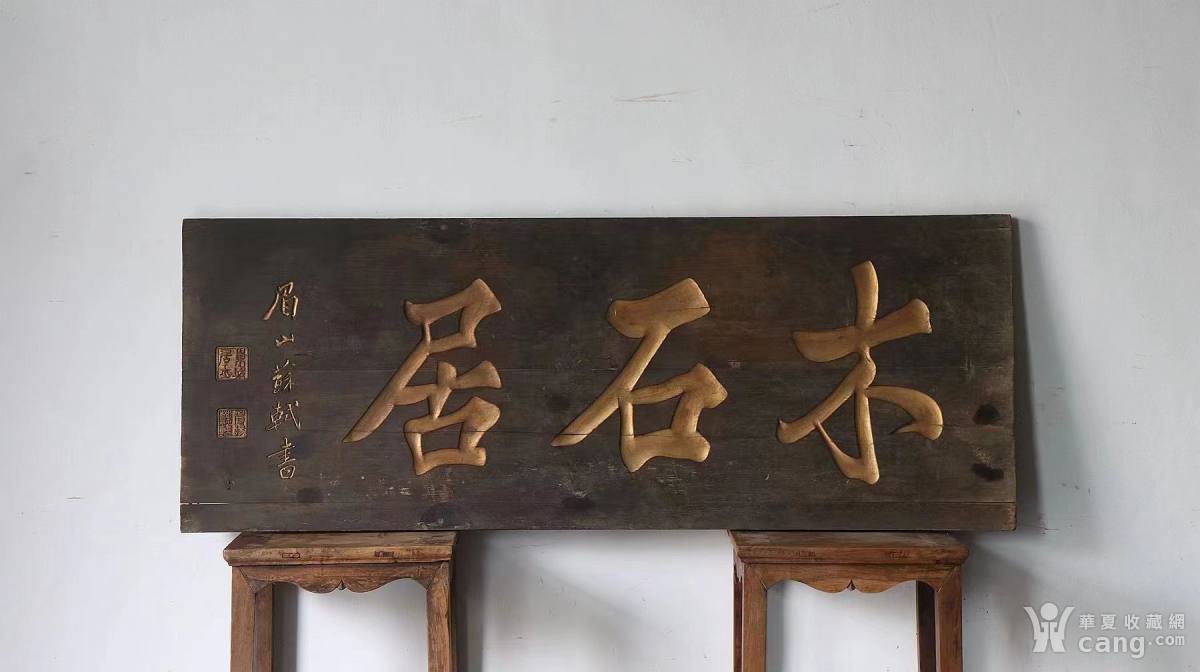 木石居
眉山蘇軾書
華夏收藏網
cang.com